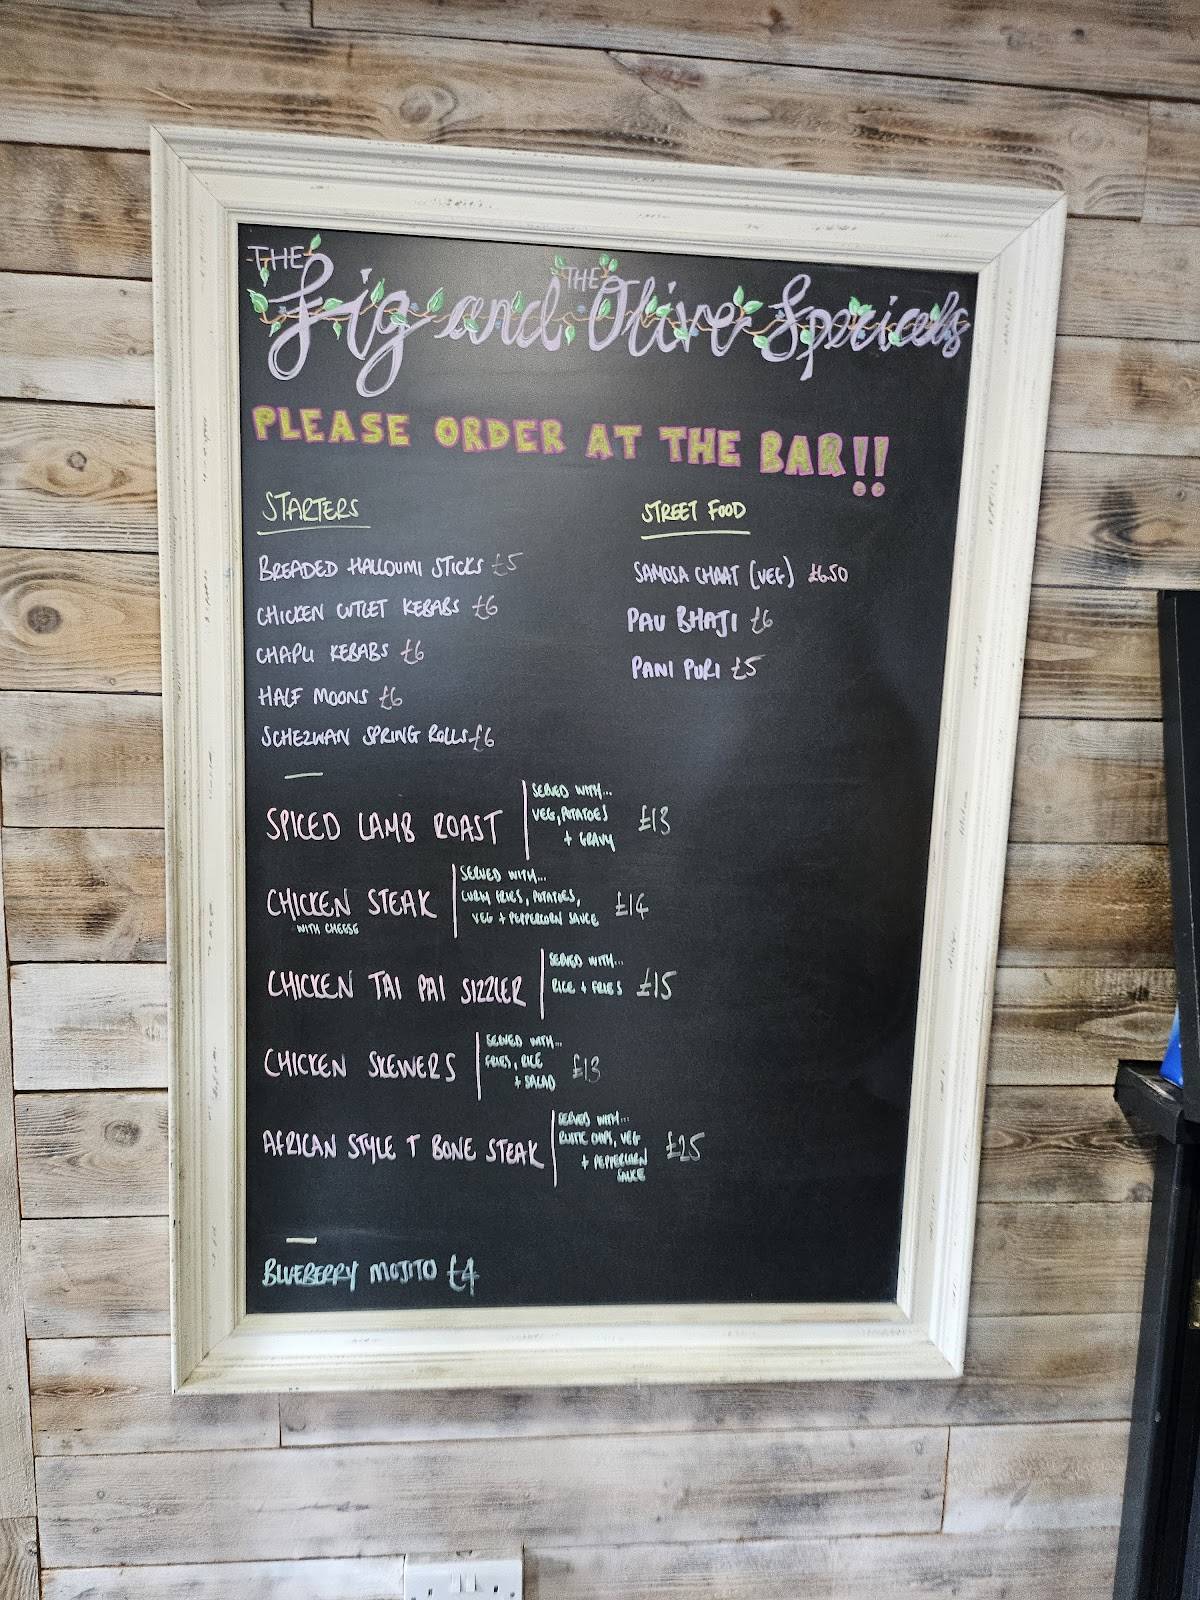 THE Fig and THE Olive Specials
PLEASE ORDER AT THE BAR!!
STARTERS
BREADED HALLOUMI STICKS £5
CHICKEN CUTLET KEBABS £6
CHAPLI KEBABS £6
HALF MOONS £6
SCHEZWAN SPRING ROLLS £6
STREET FOOD
SAMOSA CHAAT (VEG) £6.50
PAU BHAJI £6
PANI PURI £5
SPICED LAMB ROAST
SERVED WITH...
VEG, POTATOES
+ GRAVY
£13
CHICKEN STEAK
WITH CHEESE
SERVED WITH...
CURLY FRIES, POTATOES,
VEG + PEPPERCORN SAUCE
£14
CHICKEN TAI PAI SIZZLER
SERVED WITH...
RICE + FRIES
£15
CHICKEN SKEWERS
SERVED WITH...
FRIES, RICE
+ SALAD
£13
AFRICAN STYLE T BONE STEAK
SERVED WITH...
CHIPS, VEG
+ PEPPERCORN
SAUCE
£25
BLUEBERRY MOJITO £4